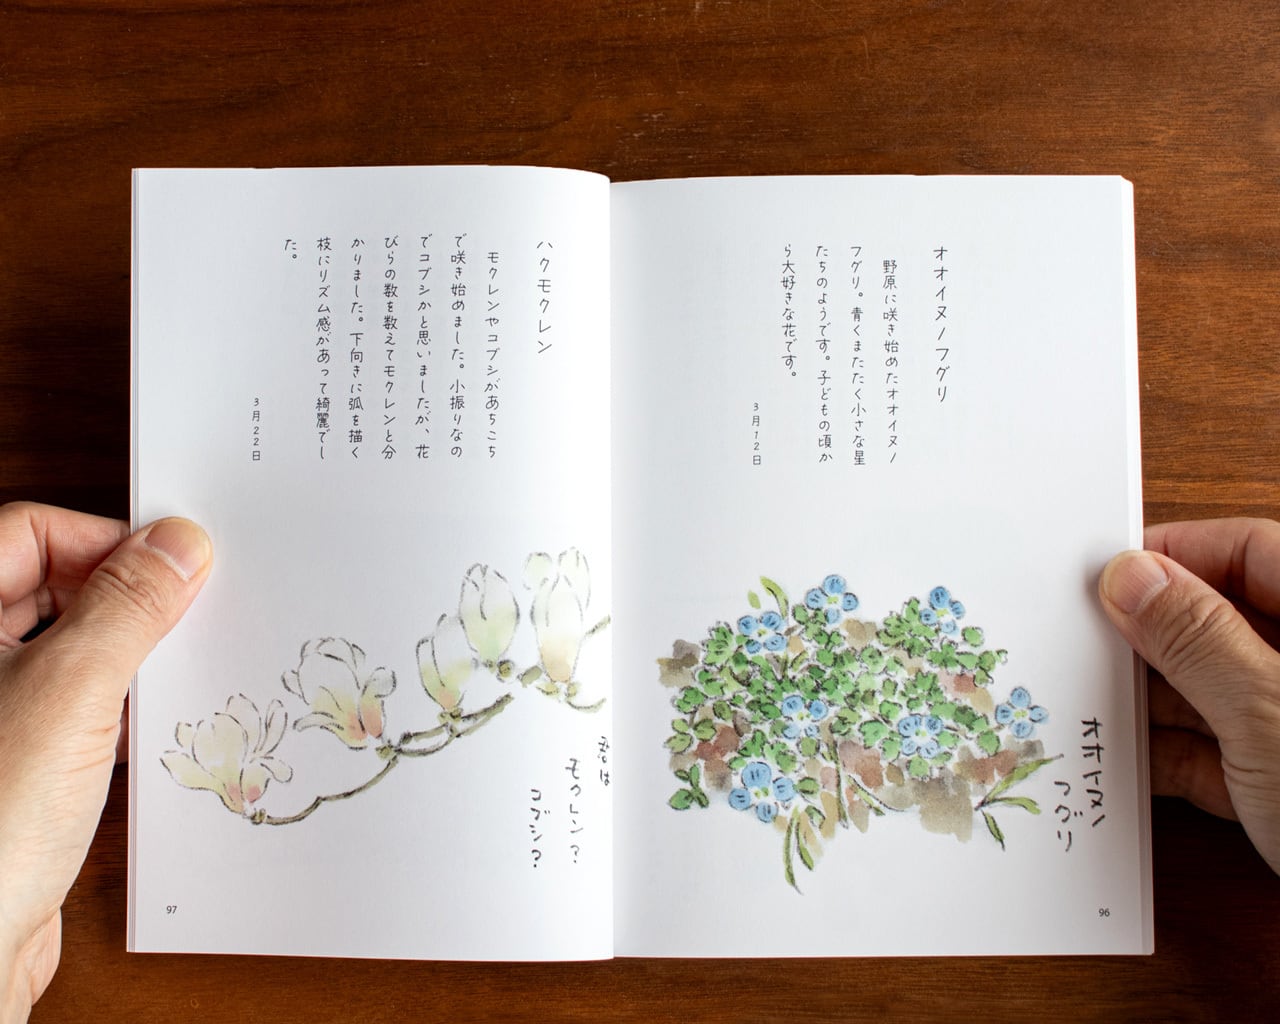 オオイヌノフグリ
野原に咲き始めたオオイヌノ
フグリ。青くまたたく小さな星
たちのようです。子どもの頃か
ら大好きな花です。
3月12日
オオイヌノ
フグリ
96
ハクモクレン
モクレンやコブシがあちこち
で咲き始めました。小振りなの
でコブシかと思いましたが、花
びらの数を数えてモクレンと分
かりました。下向きに弧を描く
枝にリズム感があって綺麗でし
た。
3月22日
君は
モクレン?
コブシ?
97